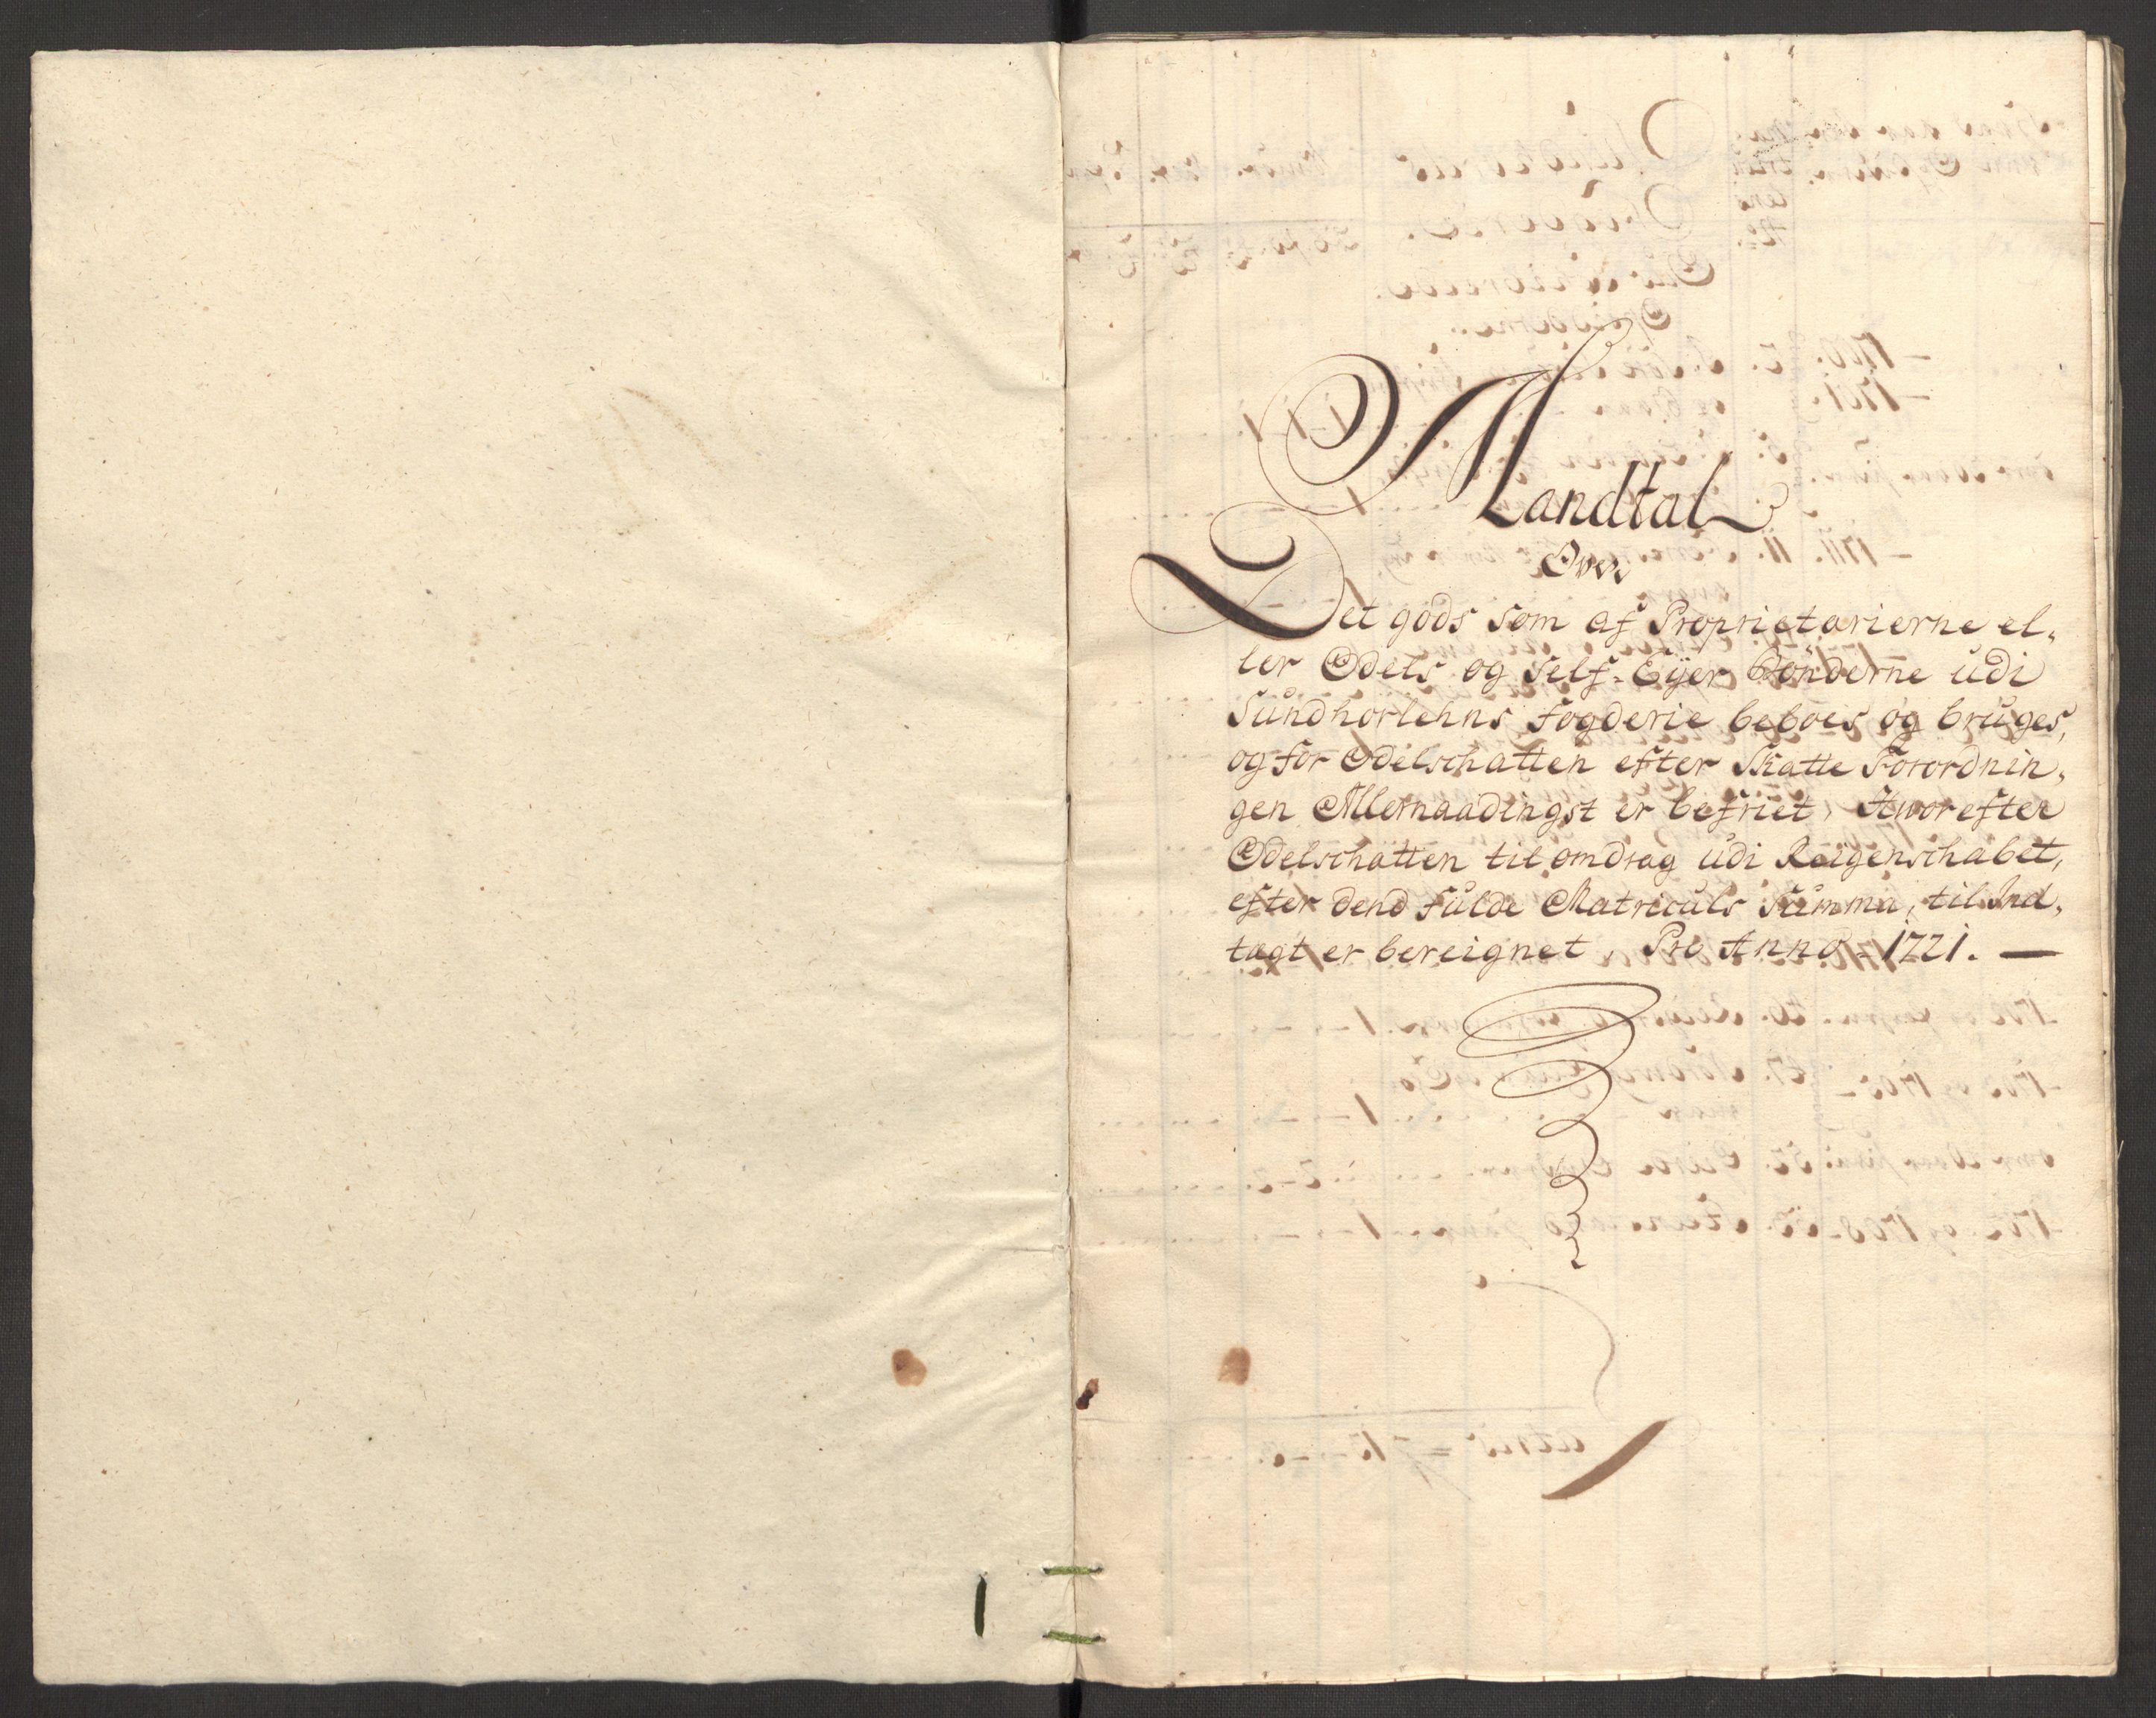 Mandtal
Over
Det gods som af Proprietarierne el,
ler Odels og Self-Eÿer Bönderne udi
Sundhorlehns Fogderie beboes og bruges,
og for Odelschatten efter Skatte Forordnin,
gen Allernaadingst er befriet, Hvorefter
Odelschatten til omdrag udi Reigenschabet,
efter dend fulde Matriculs Summa, til Ind,
tægt er bereignet, Pro Anno 1721. —